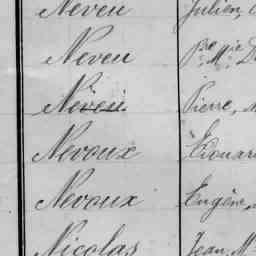 Neveu Julien,
Neveu Pre Mie
Neveu Pierre,
Nevoux Edouar
Nevoux Eugène,
Nicolas Jean, M